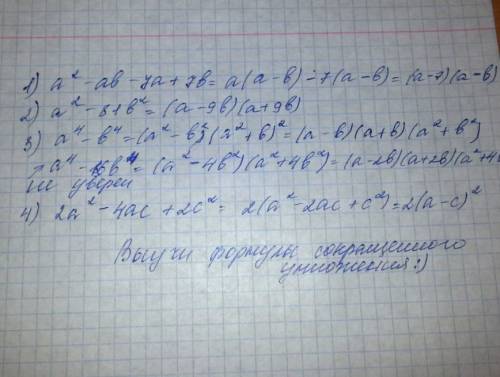 1) a² - ab - 7a + 7b = a(a - b) - 7(a - b) = (a - 7)(a - b)
2) a² - 81b² = (a - 9b)(a + 9b)
3) a⁴ - b⁴ = (a² - b²)(a² + b)² = (a - b)(a + b)(a² + b²)
a⁴ - 16b⁴ = (a² - 4b²)(a² + 4b²) = (a - 2b)(a + 2b)(a² + 4
не уверен
4) 2a² - 4ac + 2c² = 2(a² - 2ac + c²) = 2(a - c)²
Выучи формулы сокращенного
умножения :)